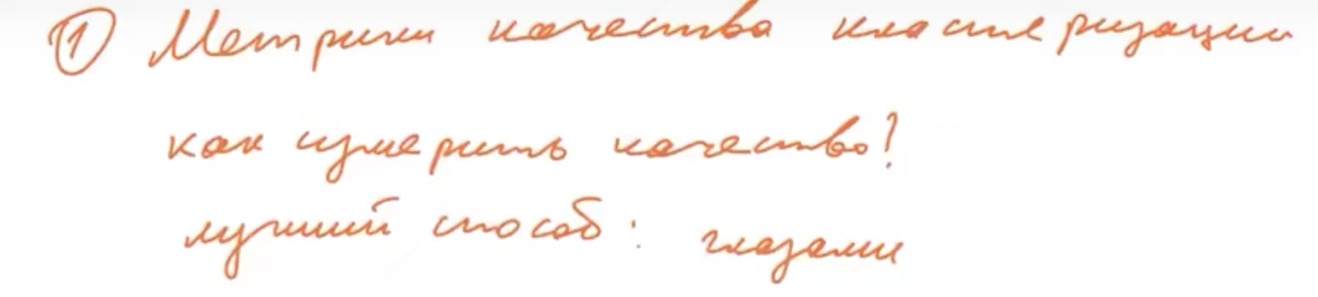 ① Метрики качества кластеризации
как измерить качество?
лучший способ: глазами